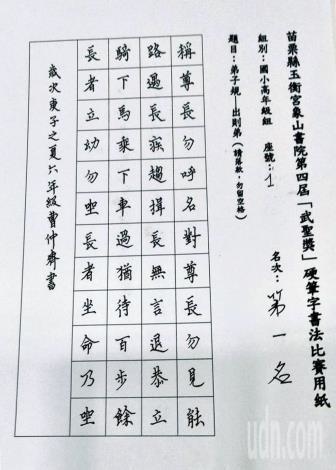 苗栗縣玉衡宮象山書院第四屆「武聖獎」硬筆字書法比賽用紙
組別：國小高年級組 座號：1 名次：第一名
題目：弟子規──出則弟（請落款，勿留空格）
稱尊長勿呼名對尊長勿見能
路遇長疾趨揖長無言退恭立
騎下馬乘下車過猶待百步餘
長者立幼勿坐長者坐命乃坐
歲次庚子之夏六年級曹仲書
udn.com